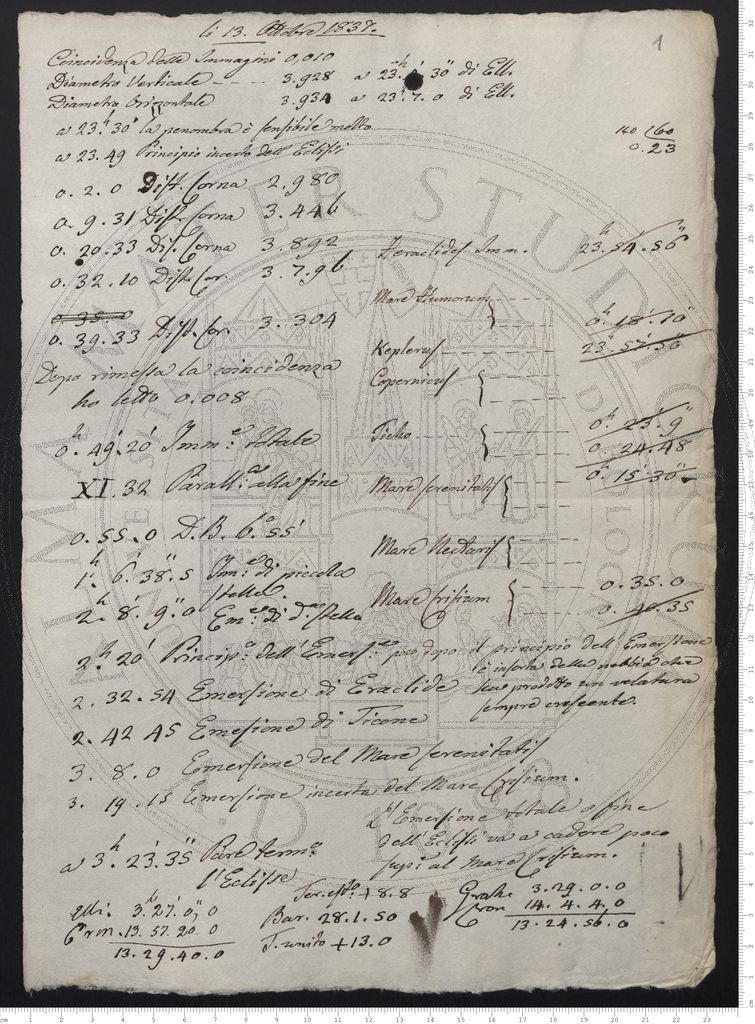 li 13. Ottobre 1837.
1
Coincidenza delle Immagini 0,010
Diametro Verticale ---- 3.928 a 23.h 30" di Ell.
Diametro Orizontale 3.934 a 23.h 7. 0 di Ell.
a 23.h 30' la penombra è sensibile molto
a 23.49 Principio incerto dell'Eclissi
160 (60
0.23
0. 2. 0 Dist. Corna 2.980
0. 9.31 Dist. Corna 3.446
0. 20.33 Dis. Corna 3.892
0. 32.10 Dist. Cor. 3.796
0 35. 0
0. 39.33 Dist. Cor. 3.304
Dopo rimessa la coincidenza
ho letto 0.008
0.h 49.' 20" Imm.e totale
XI. 32 Parall. alla fine
0. 55. 0 D.B. 6.° 55'
1.h 6.' 38".5 Im.e di piccola
stella.
2.h 8.' 9".0 Em.e di d.a stella
Heraclides Imm. 23.h 54.' 56"
Mare Humorum
0.h 18.' 10"
Keplerus 23. 57. 50
Copernicus
Ticho
0.h 23.' 9"
0. 24.48
0.h 15.' 30"
Mare Serenitatis
Mare Nectaris
Mare Crisium
0. 35. 0
0. 40. 35
2.h 20' Princip.o dell'Emers.e poco dopo il principio dell'Emersione
è insorta della nebbia che
ha prodotto un velatura
sempre crescente.
2. 32. 54 Emersione di Eraclide
2. 42 45 Emesione di Ticone
3. 8. 0 Emersione del Mare Serenitatis
3. 19. 15 Emersione incerta del Mare Crisium.
L'Emersione totale o fine
dell'Eclissi va a cadere poco
sup. al Mare Crisium.
a 3.h 23.' 35" Pare term.a
l'Eclisse
Elli. 3.h 27.' 0," 0
Crm. 13. 57. 20. 0
13. 29. 40. 0
Ter. esto + 8.8
Bar. 28. 1. 50
T. unito + 13.0
Grah. 3. 29. 0. 0
Cron 14. 4. 4. 0
13. 24. 56. 0
ALMA MATER STUDIORUM
A.D. 1088